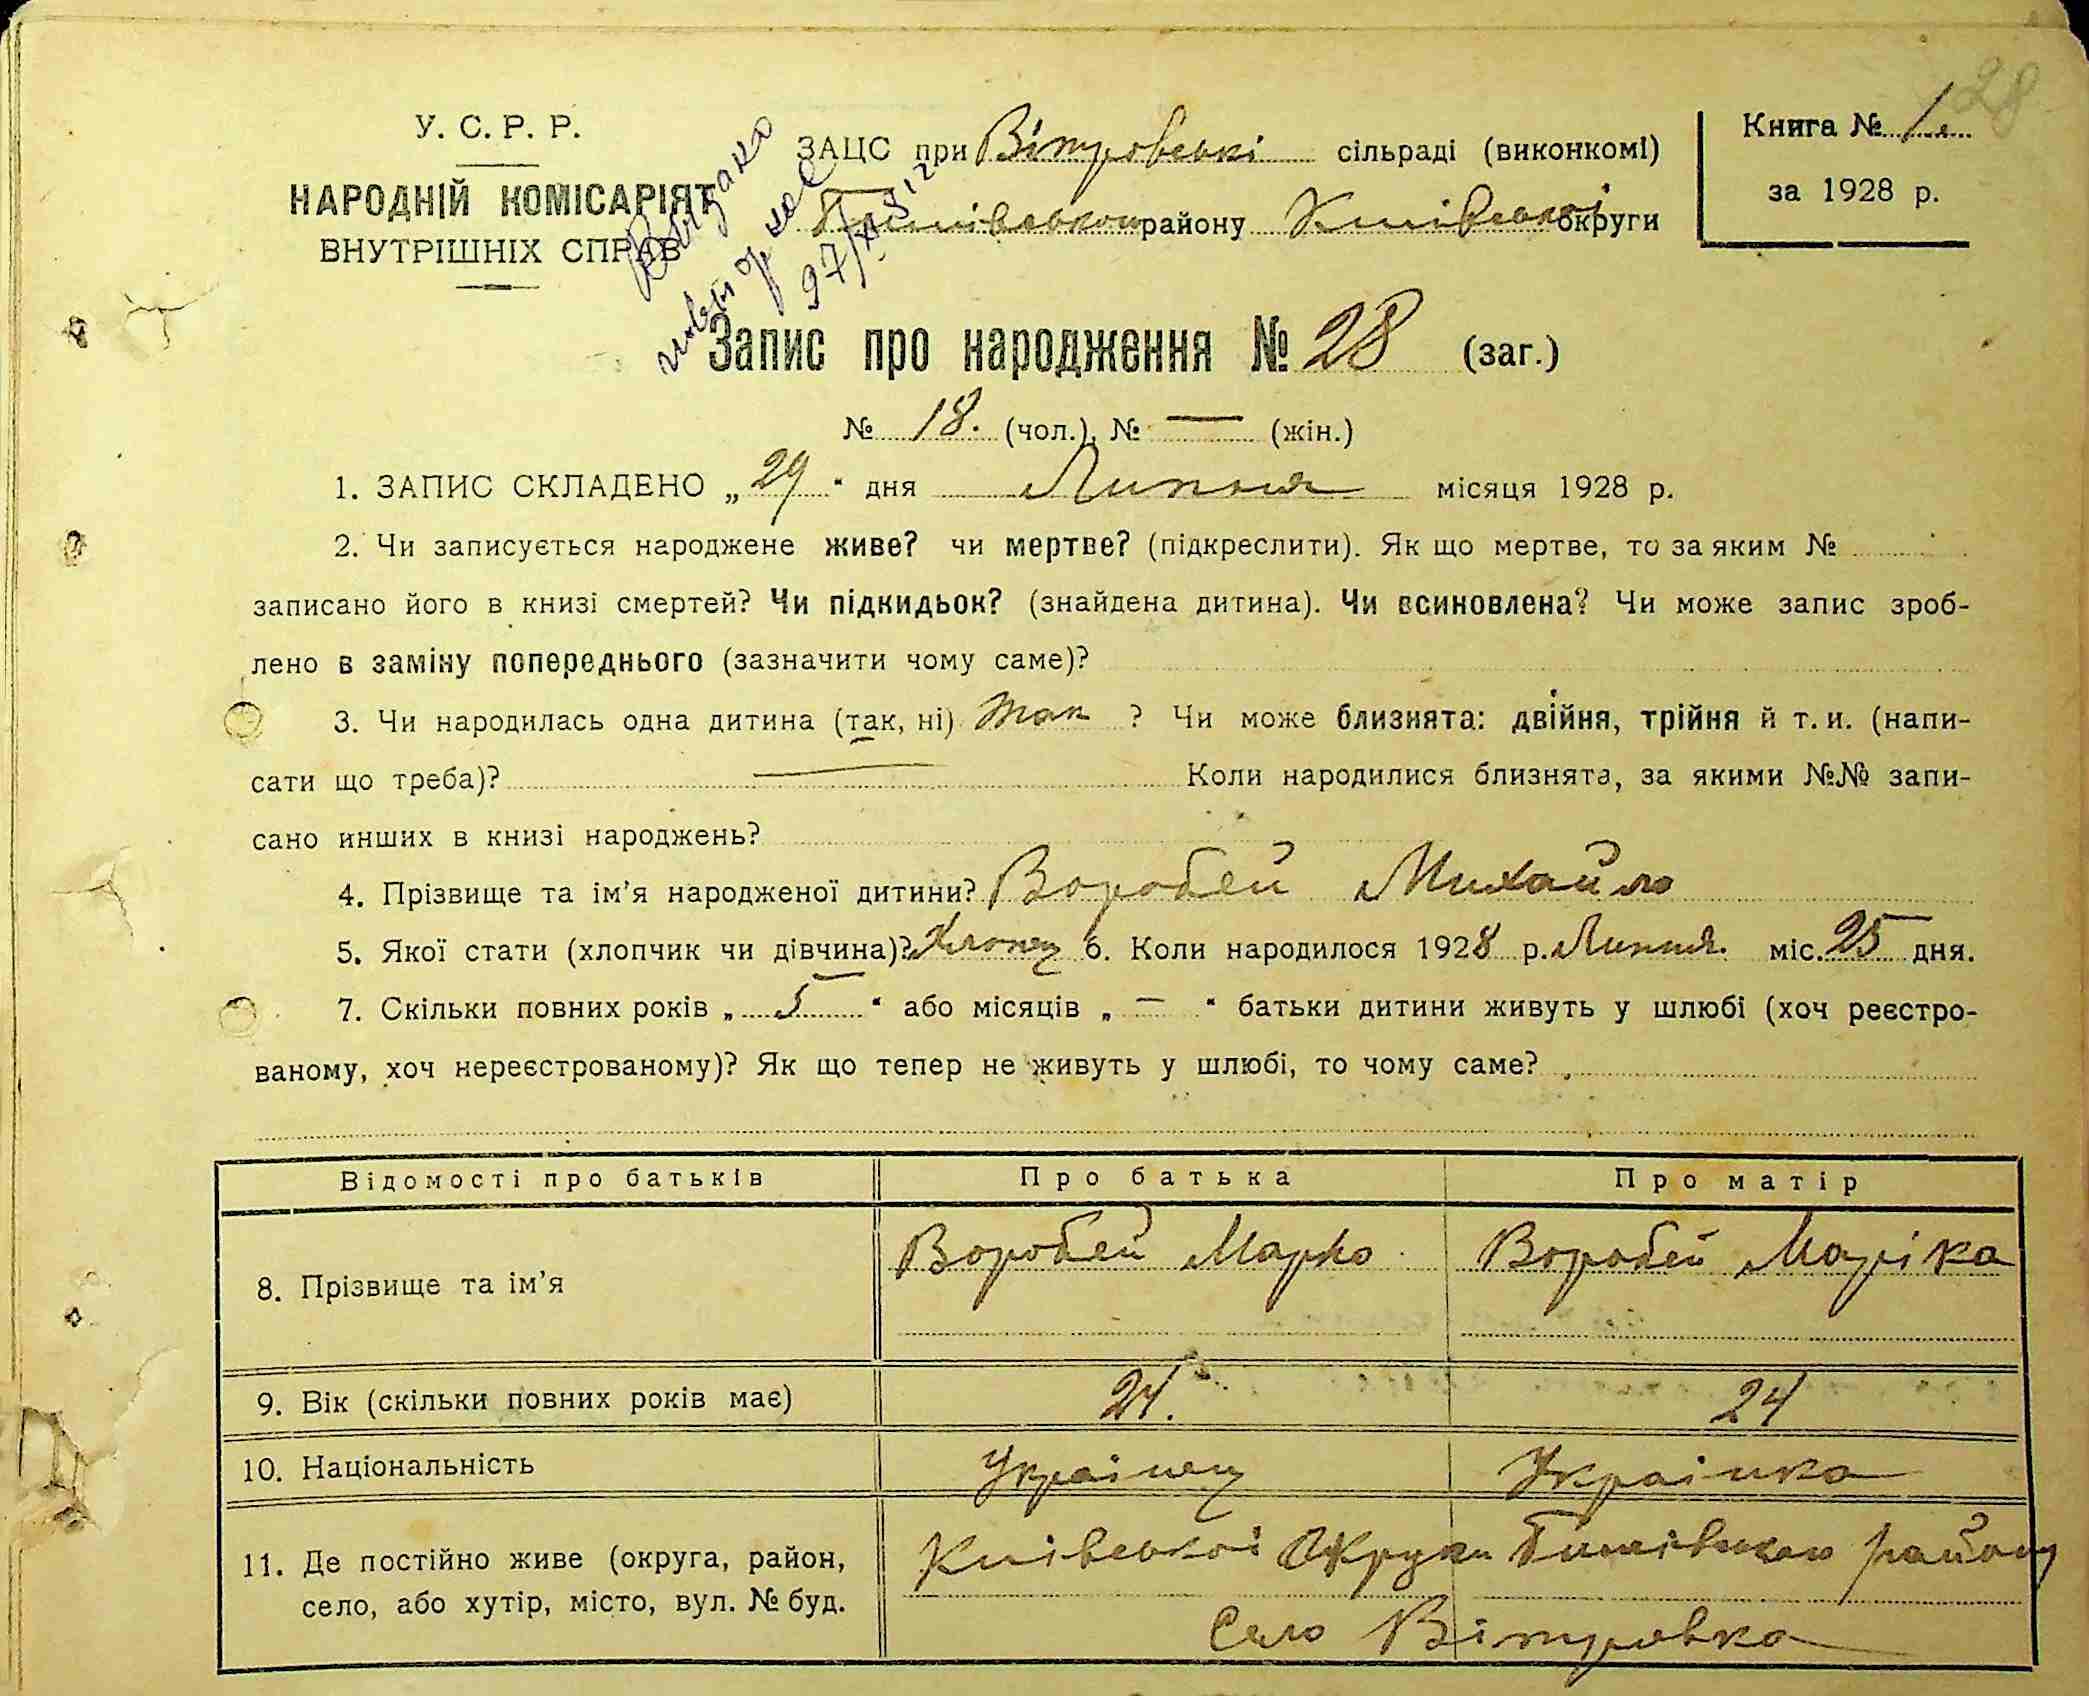 28
У. С. Р. Р.
НАРОДНІЙ КОМІСАРІЯТ
ВНУТРІШНІХ СПРАВ
Видано
ЗАЦС при Вітровській сільраді (виконкомі)
району Київської округи
Книга № 1
за 1928 р.
Запис про народження № 28 (заг.)
№ 18. (чол.), № — (жін.)
1. ЗАПИС СКЛАДЕНО „29" дня Липня місяця 1928 р.
2. Чи записується народжене живе? чи мертве? (підкреслити). Як що мертве, то за яким №
записано його в книзі смертей? Чи підкидьок? (знайдена дитина). Чи всиновлена? Чи може запис зроб-
лено в заміну попереднього (зазначити чому саме)?
3. Чи народилась одна дитина (так, ні) так ? Чи може близнята: двійня, трійня й т. и. (напи-
сати що треба)? — Коли народилися близнята, за якими №№ запи-
сано инших в книзі народжень?
4. Прізвище та ім'я народженої дитини? Воробей Михайло
5. Якої стати (хлопчик чи дівчина)? Хлопец 6. Коли народилося 1928 р. Липня. міс. 25 дня.
7. Скільки повних років „ 5 " або місяців „ — " батьки дитини живуть у шлюбі (хоч реєстро-
ваному, хоч нереєстрованому)? Як що тепер не живуть у шлюбі, то чому саме?
Відомості про батьків Про батька Про матір
8. Прізвище та ім'я Воробей Марко Воробей Маріка
9. Вік (скільки повних років має) 24. 24
10. Національність Українец Українка
11. Де постійно живе (округа, район, Київської Округи району
село, або хутір, місто, вул. № буд. Село Вітровка